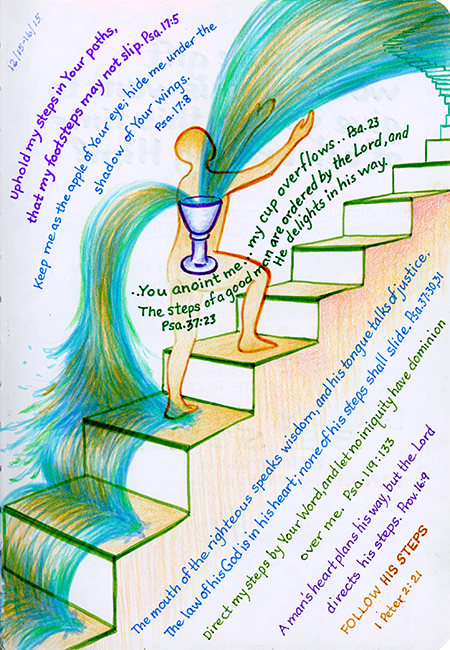 12/15-16/15
Uphold my steps in Your paths,
that my footsteps may not slip. Psa.17:5
Keep me as the apple of Your eye, hide me under the
shadow of Your wings.
Psa.17:8
..You anoint me...my cup overflows.. Psa.23
The steps of a good man are ordered by the Lord, and
He delights in his way.
Psa.37:23
The mouth of the righteous speaks wisdom, and his tongue talks of justice.
The law of his God is in his heart; none of his steps shall slide. Psa.37:30,31
Direct my steps by Your Word, and let no iniquity have dominion
over me. Psa.119:133
A man's heart plans his way, but the Lord
directs his steps. Prov.16:9
FOLLOW HIS STEPS
1 Peter 2:21